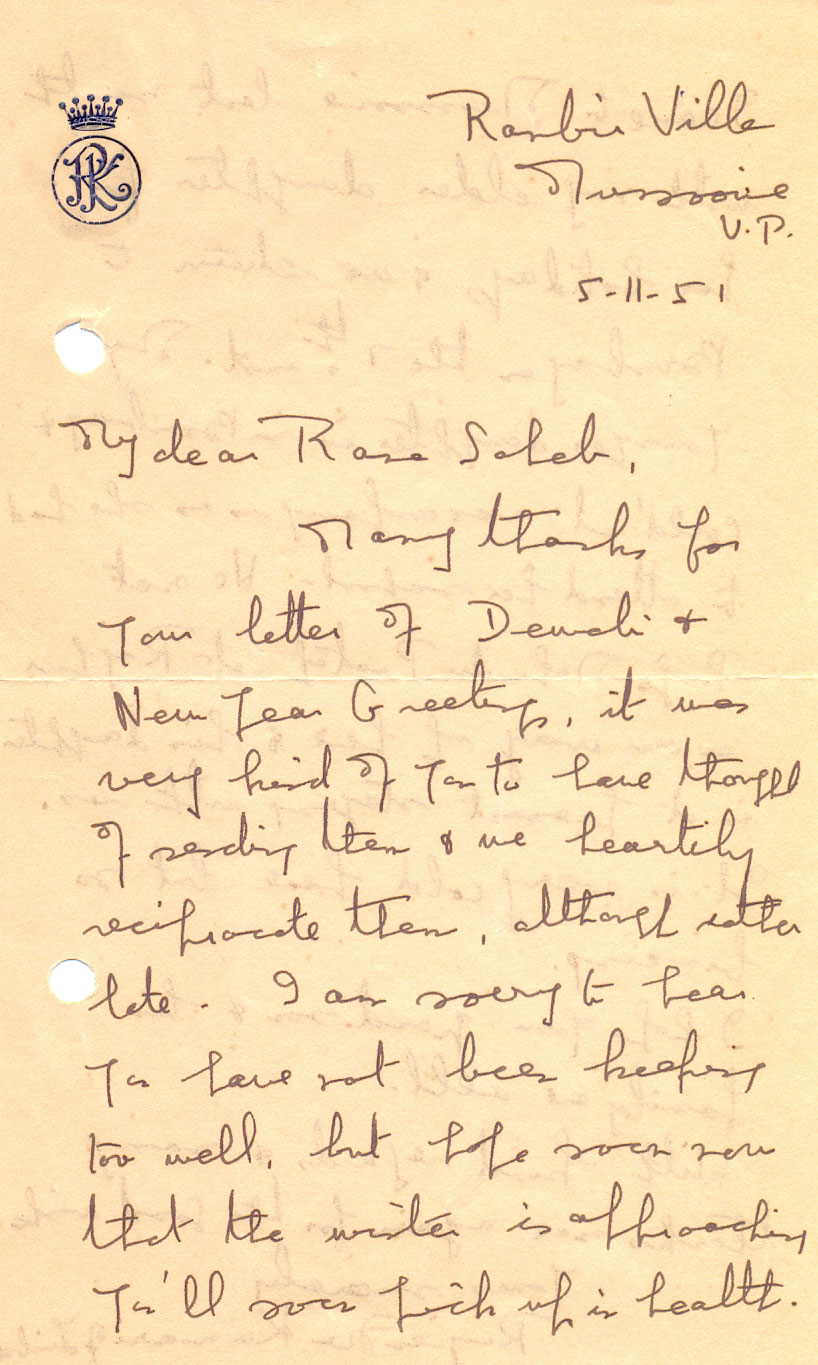 Ranbir Ville
Mussoorie
U.P.
5-11-51
My dear Rana Saheb,
Many thanks for
your letter of Dewali &
New Year Greetings, it was
very kind of you to have thought
of sending them & we heartily
reciprocate them, although rather
late. I am sorry to hear
you have not been keeping
too well, but hope soon now
that the winter is approaching
you'll soon pick up in health.